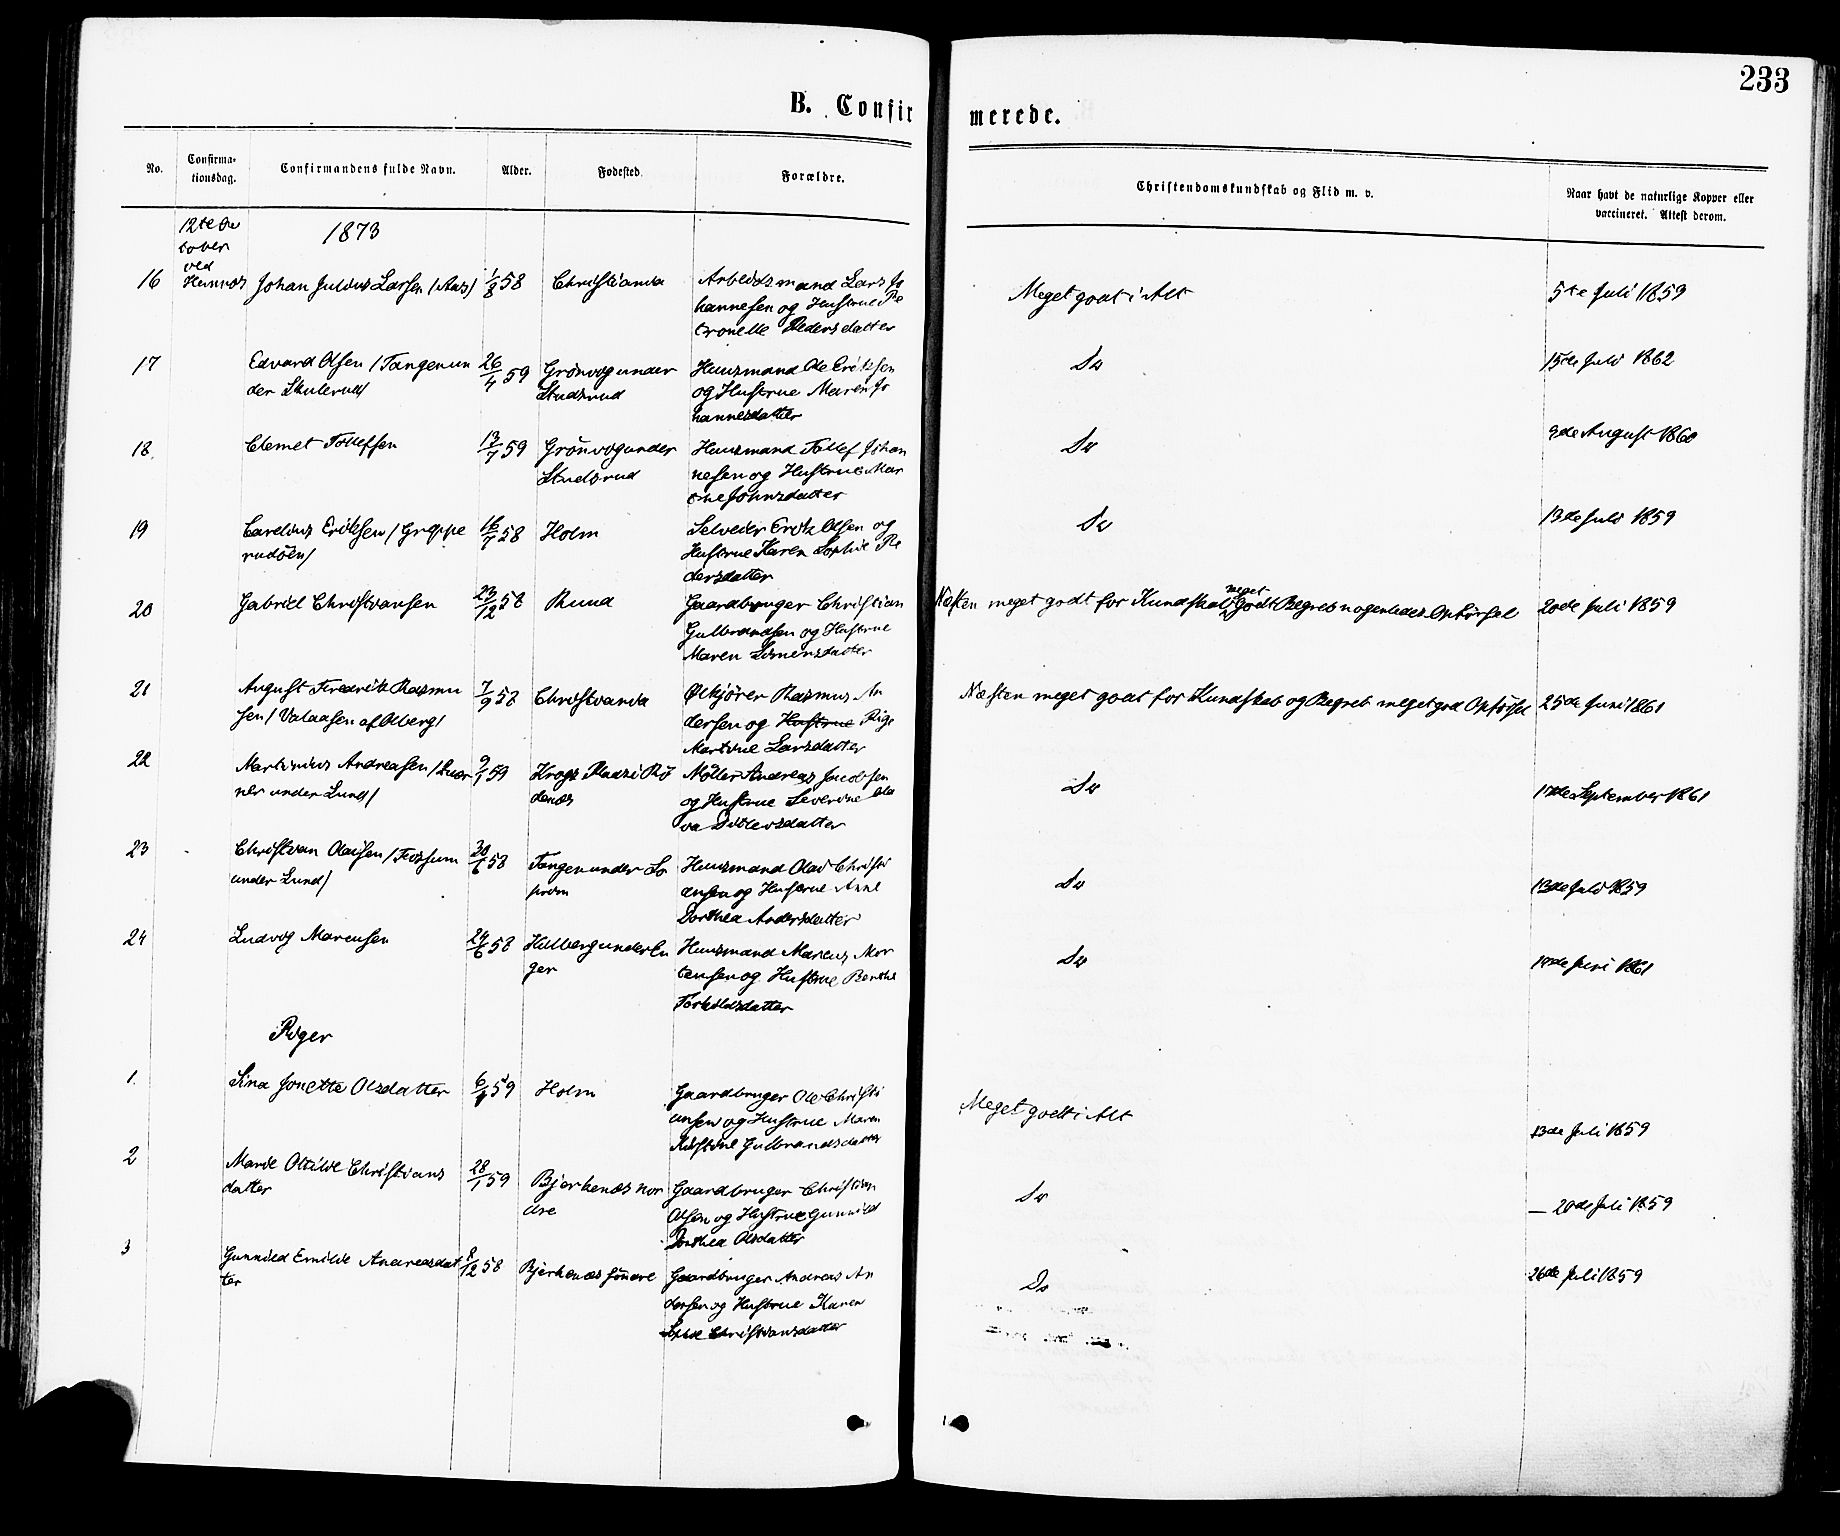 233
B. Confir
merede.
No.
Confirma-
tionsdag.
Confirmandens fulde Navn.
Alder.
Fødested.
Forældre.
Christendomskundskab og Flid m. v.
Naar havt de naturlige Kopper eller
vaccineret. Attest derom.
12te Oc
tober
ved
Hemnæs
1873
16
Johan Julius Larsen /Aas/
1/8 58
Christiania
Arbeidsmand Lars Jo
hannesen og Hustrue Pe
tronelle Pedersdatter
Meget godt i Alt
5te Juli 1859
17
Edvard Olsen /Tangen un
der Skulerud/
26/4 59
Grönvog under
Studsrud
Huusmand Ole Eriksen
og Hustrue Maren Jo
hannesdatter
Do
15de Juli 1862
18.
Clemet Tollefsen
13/7 59
Grönvog under
Studsrud
Huusmand Tollef Johan
nesen og Hustrue Mar
the Johnsdatter
Do
9de August 1860
19
Carelius Eriksen / Greppe
rudöen/
16/7 58
Holm
Selveier Erik Olsen og
Hustrue Karen Sophie Pe
dersdatter
Do
13de Juli 1859
20
Gabriel Christiansen
23/12 58
Ruud
Gaardbruger Christian
Gulbrandsen og Hustrue
Maren Simensdatter
Næsten meget godt for Kundskab meget godt Begreb nogenledes Opförsel
20de Juli 1859
21
August Fredrik Rasmu
sen / Valaasen af Olberg/
7/9 58
Christiania
Ølkjörer Rasmus An
dersen og Hustrue Pige
Martine Larsdatter
Næsten meget godt for Kundskab og Begreb meget god Opförsel
25de Juni 1861
22
Martinius Andreasen /
under Lund/
9/1 59
Krogs Plads i Rö
denæs
Möller Andreas Jacobsen
og Hustrue Severine Ola
va Ditlevsdatter
Do
September 1861
23
Christian Olausen / Fossum
under Lund/
30/6 58
Tangen under So
prim
Huusmand Olau Christi
ansen og Hustrue Anne
Dorthea Andersdatter
Do
13de Juli 1859
24
Ludvig Marcusen
24/6 58
Huusmand Marcus Mor
tensen og Hustrue Berthe
Torkildsdatter
Do
Juni 1861
Piger
1.
Sina Jonette Olsdatter
59
Holm
Gaardbruger Ole Christi
ansen og Hustrue Maren
Kirstine Gulbrandsdatter
Meget godt i Alt
13de Juli 1859
2
Marie Otilie Christians
datter
28/1 59
Bjerkenæs nor
dre
Gaardbruger Christian
Olsen og Hustrue Gunnild
Dorthea Olsdatter
Do
— 20de Juli 1859
3
Gunnild Emilie Andreasdat
ter
8/12 58
Bjerkenæs söndre
Gaardbruger Andreas An
dersen og Hustrue Karen
Sophie Christiansdatter
Do
26de Juli 1859